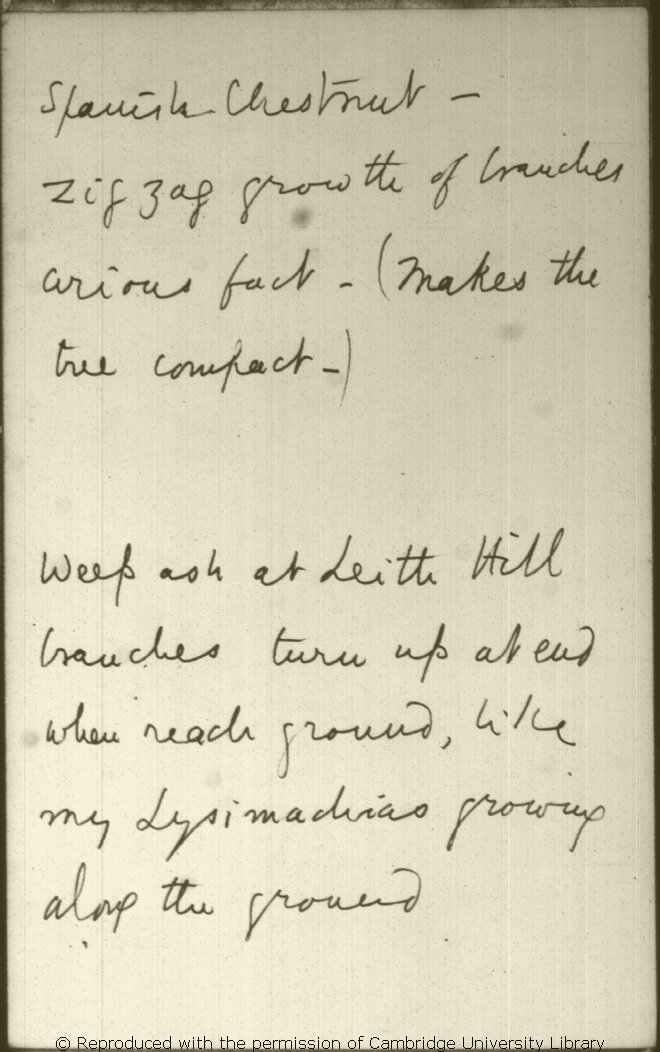 Spanish Chestnut –
zig zag growth of branches
curious fact – (makes the
tree compact –)
Weep ash at Leith Hill
branches turn up at end
when reach ground, like
my Lysimachias growing
along the ground
© Reproduced with the permission of Cambridge University Library